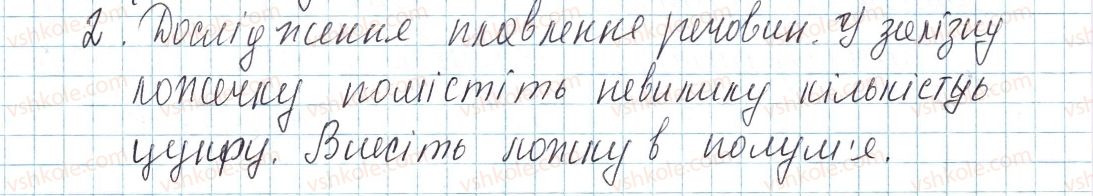 2. Дослідження плавлення речовин. У залізну
ложечку помістіть невилику кількістуь
цукру. Внесіть ложку в полум'я.